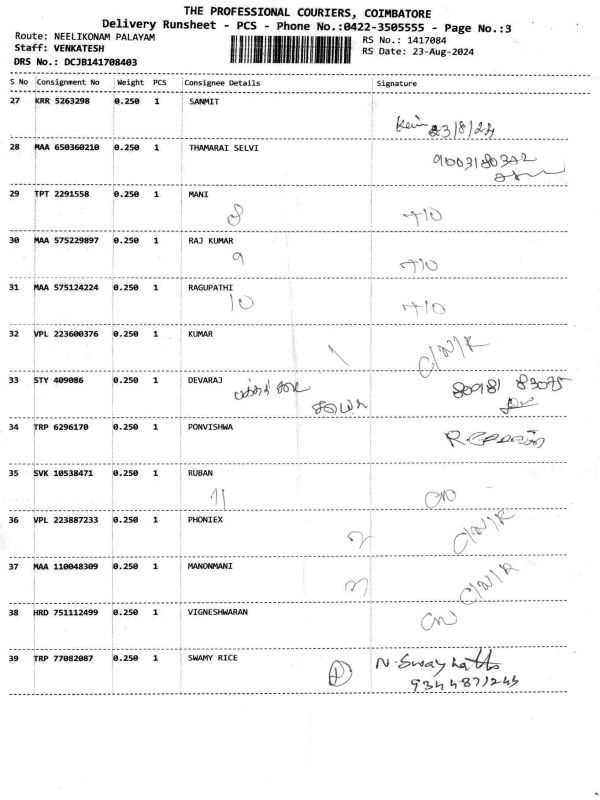 THE PROFESSIONAL COURIERS, COIMBATORE
Delivery Runsheet - PCS - Phone No.:0422-3505555 - Page No.:3
Route: NEELIKONAM PALAYAM
RS No.: 1417084
Staff: VENKATESH
RS Date: 23-Aug-2024
DRS No.: DCJB141708403
S No Consignment No Weight PCS Consignee Details Signature
27 KRR 5263298 0.250 1 SANMIT
23/8/24
28 MAA 650360210 0.250 1 THAMARAI SELVI
29 TPT 2291558 0.250 1 MANI
8
30 MAA 575229897 0.250 1 RAJ KUMAR
9
31 MAA 575124224 0.250 1 RAGUPATHI
10
32 VPL 223600376 0.250 1 KUMAR
1 C/N/R
33 STY 409086 0.250 1 DEVARAJ
34 TRP 6296170 0.250 1 PONVISHWA
35 SVK 10538471 0.250 1 RUBAN
11
36 VPL 223887233 0.250 1 PHONIEX
2 C/N/R
37 MAA 110048309 0.250 1 MANONMANI
3 C/N/R
38 HRD 751112499 0.250 1 VIGNESHWARAN
39 TRP 77082087 0.250 1 SWAMY RICE